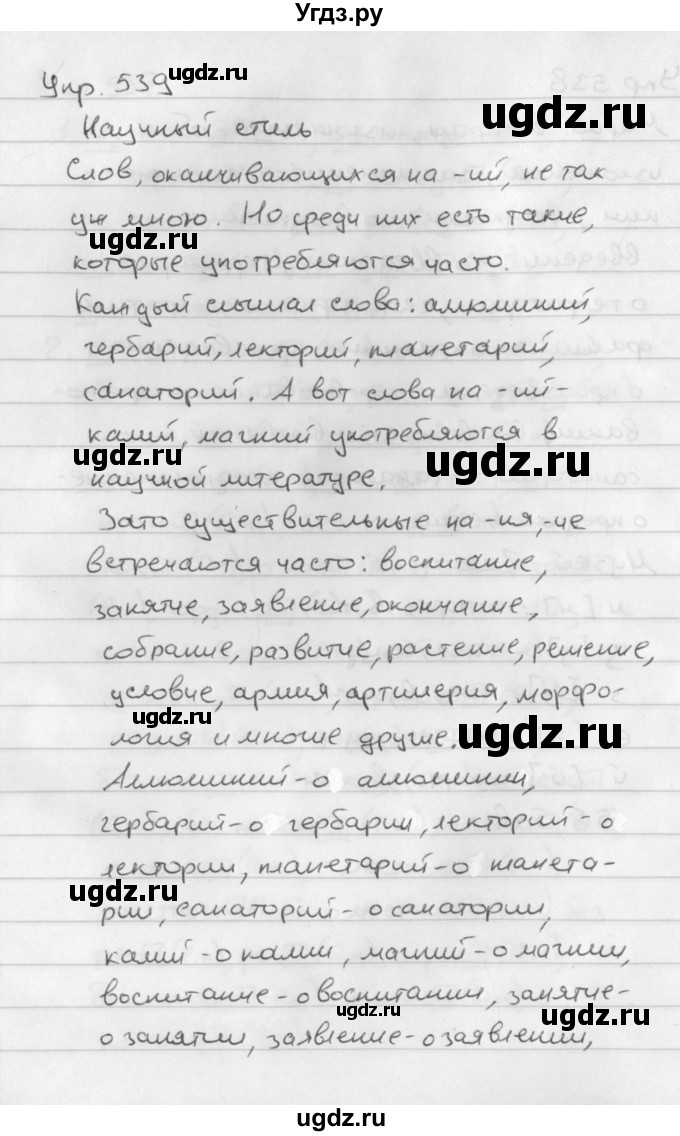 Угдз.ру
Упр. 539
Научный стиль
Слов, оканчивающихся на -ий, не так
уж много. Но среди них есть такие,
которые употребляются часто.
Каждый слышал слова: алюминий,
гербарий, лекторий, планетарий,
санаторий. А вот слова на -ий-
калий, магний употребляются в
научной литературе.
Зато существительные на -ия, ие
встречаются часто: воспитание,
занятие, заявление, окончание,
собрание, развитие, растение, решение,
условие, армия, артиллерия, морфо-
логия и многие другие.
Алюминий - о алюминии,
гербарий - о гербарии, лекторий - о
лектории, планетарий - о планета-
рии, санаторий - о санатории,
калий - о калии, магний - о магнии,
воспитание - о воспитании, занятие -
о занятии, заявление - о заявлении,
ugdz.ru
ugdz.ru
ugdz.ru
ugdz.ru
ugdz.ru
ugdz.ru
ugdz.ru
ugdz.ru
ugdz.ru
ugdz.ru
ugdz.ru
ugdz.ru
ugdz.ru